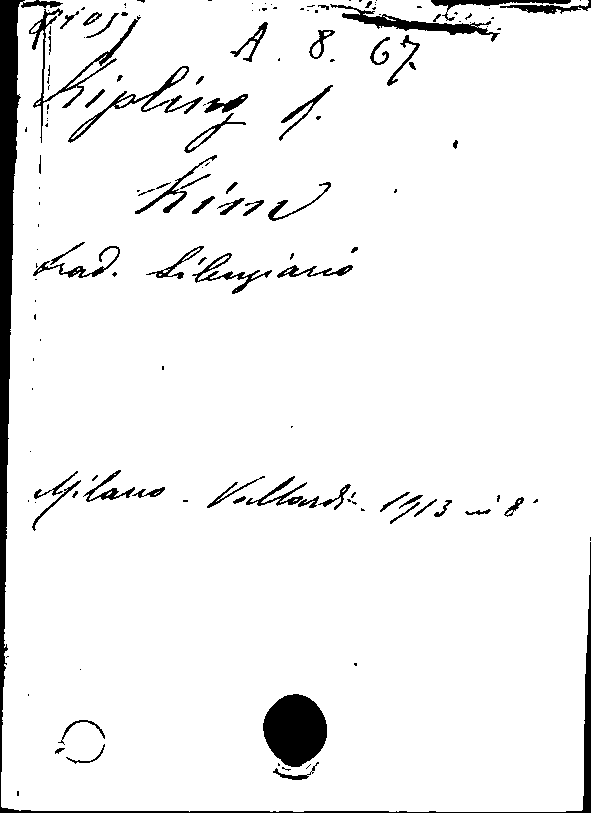 A. 8. 67.
Kipling J.
Kim
trad. Silenziario
Milano - Vallardi - 1913 in 8°